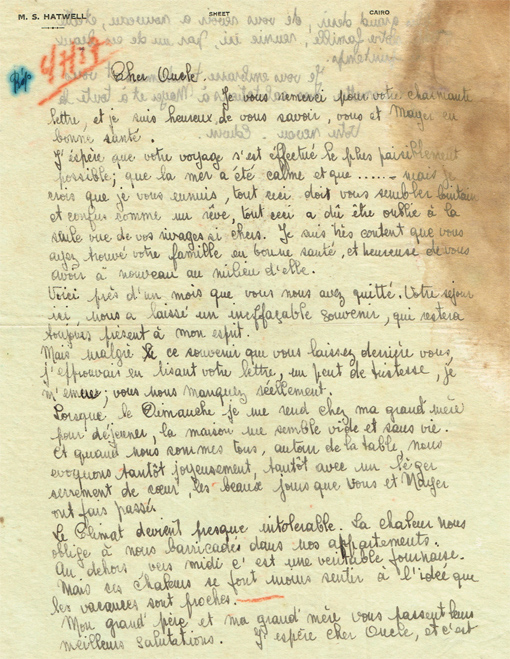 M. S. HATWELL SHEET CAIRO
Rép
4/7/27
Cher Oncle.
Je vous remerci pour votre charmante
lettre, et je suis heureux de vous savoir, vous et Mayer en
bonne santé.
J'éspère que votre voyage s'est effectué le plus paisiblement
possible; que la mer a été calme et que ...... mais je
crois que je vous ennuis, tout ceci doit vous sembler lointain
et confus comme un rêve, tout ceci a dû être oublié à la
seule vue de vos rivages si chers. Je suis très content que vous
ayez trouvé votre famille en bonne santé, et heureuse de vous
avoir à nouveau au milieu d'elle.
Voici près d'un mois que vous nous avez quitté. Votre séjour
ici, nous a laissé un ineffaçable souvenir, qui restera
toujours présent à mon esprit.
Mais malgré ce souvenir que vous laissez derrière vous,
j'éprouvais en lisant votre lettre, un peut de tristesse, je
m'emeu; vous nous manquez réellement.
Lorsque le Dimanche je me rend chez ma grand'mère
pour déjeuner, la maison me semble vide et sans vie.
Et quand nous sommes tous, autour de la table, nous
evoquons tantôt joyeusement, tantôt avec un léger
serrement de cœur, les beaux jours que vous et Mayer
ont fait passer.
Le Climat devient presque intolerable. La chaleur nous
oblige à nous barricader dans nos appartements.
Au dehors vers midi c'est une veritable fournaise.
Mais ces chaleurs se font moins sentir à l'idée que
les vacances sont proches.
Mon grand père et ma grand'mère vous passent leurs
meilleurs salutations. J'éspère cher Oncle, et c'est